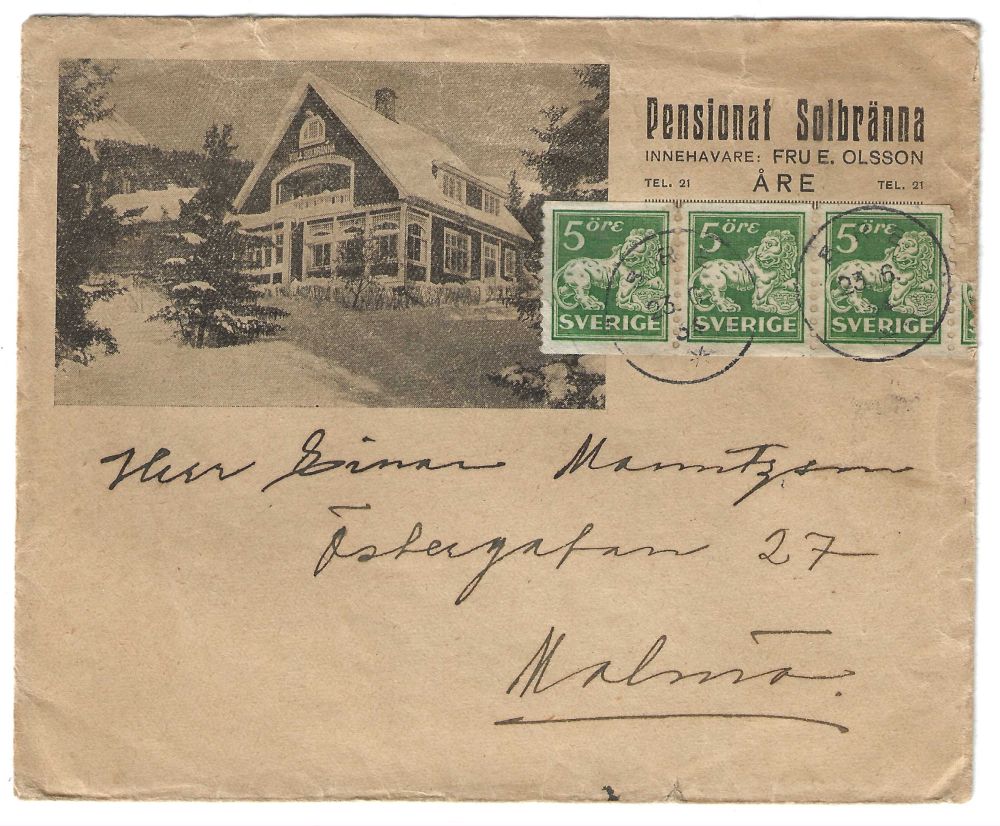 Pensionat Solbränna
INNEHAVARE: FRU E. OLSSON
TEL. 21 ÅRE TEL. 21
5 ÖRE 5 ÖRE 5 ÖRE
SVERIGE SVERIGE SVERIGE
23 6
Herr Einar Mauritzson
Östergatan 27
Malmö.